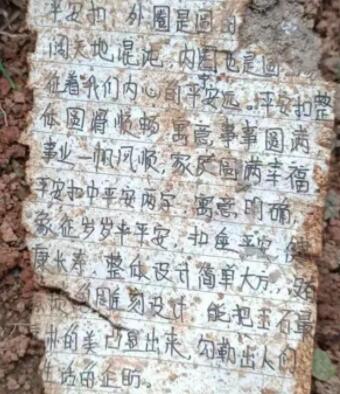 平安扣，外圈是圆的
阔天地混沌，内圈也是圆
征着我们内心的平安远。平安扣整
体圆滑顺畅寓意，事事圆满
事业一帆风顺，家庭圆满幸福
平安扣中平安两字，寓意明确，
象征岁岁平平安，扣住平安，健
康长寿，整体设计简单大方，
雕刻设计 能把玉石最
的美凸显出来，勾勒出人们
生活的企盼。